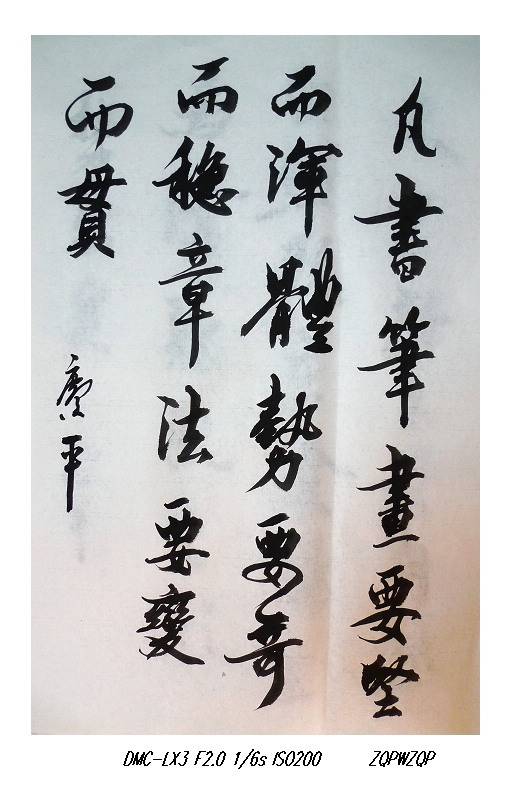 凡書筆畫要堅
而渾體勢要奇
而穩章法要變
而貫
廣平
DMC-LX3 F2.0 1/6s ISO200 ZQPWZQP